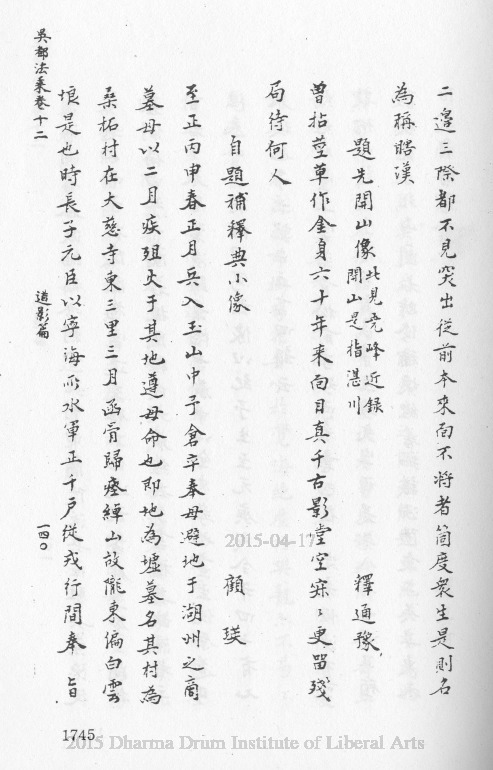 二邊三際都不見突出從前本來面不將者箇度衆生是則名
為稱瞎漢
題先開山像 此見堯峰近録 開山是指湛川 釋通豫
曾拈莖草作金身六十年來面目真千古影堂空寂〻更留殘
局待何人
自題補釋典小像 顧瑛
至正丙申春正月兵入玉山中予倉卒奉母避地于湖州之商
墓母以二月疾殂火于其地遵母命也即地為墟墓名其村為
桑柘村在大慈寺東三里三月函骨歸瘞綽山故隴東偏白雲
垠是也時長子元臣以寧海所水軍正千戶從戎行間奉 旨
吳都法乘卷十二 遺影篇 一四〇
1745
2015-04-17
2015 Dharma Drum Institute of Liberal Arts